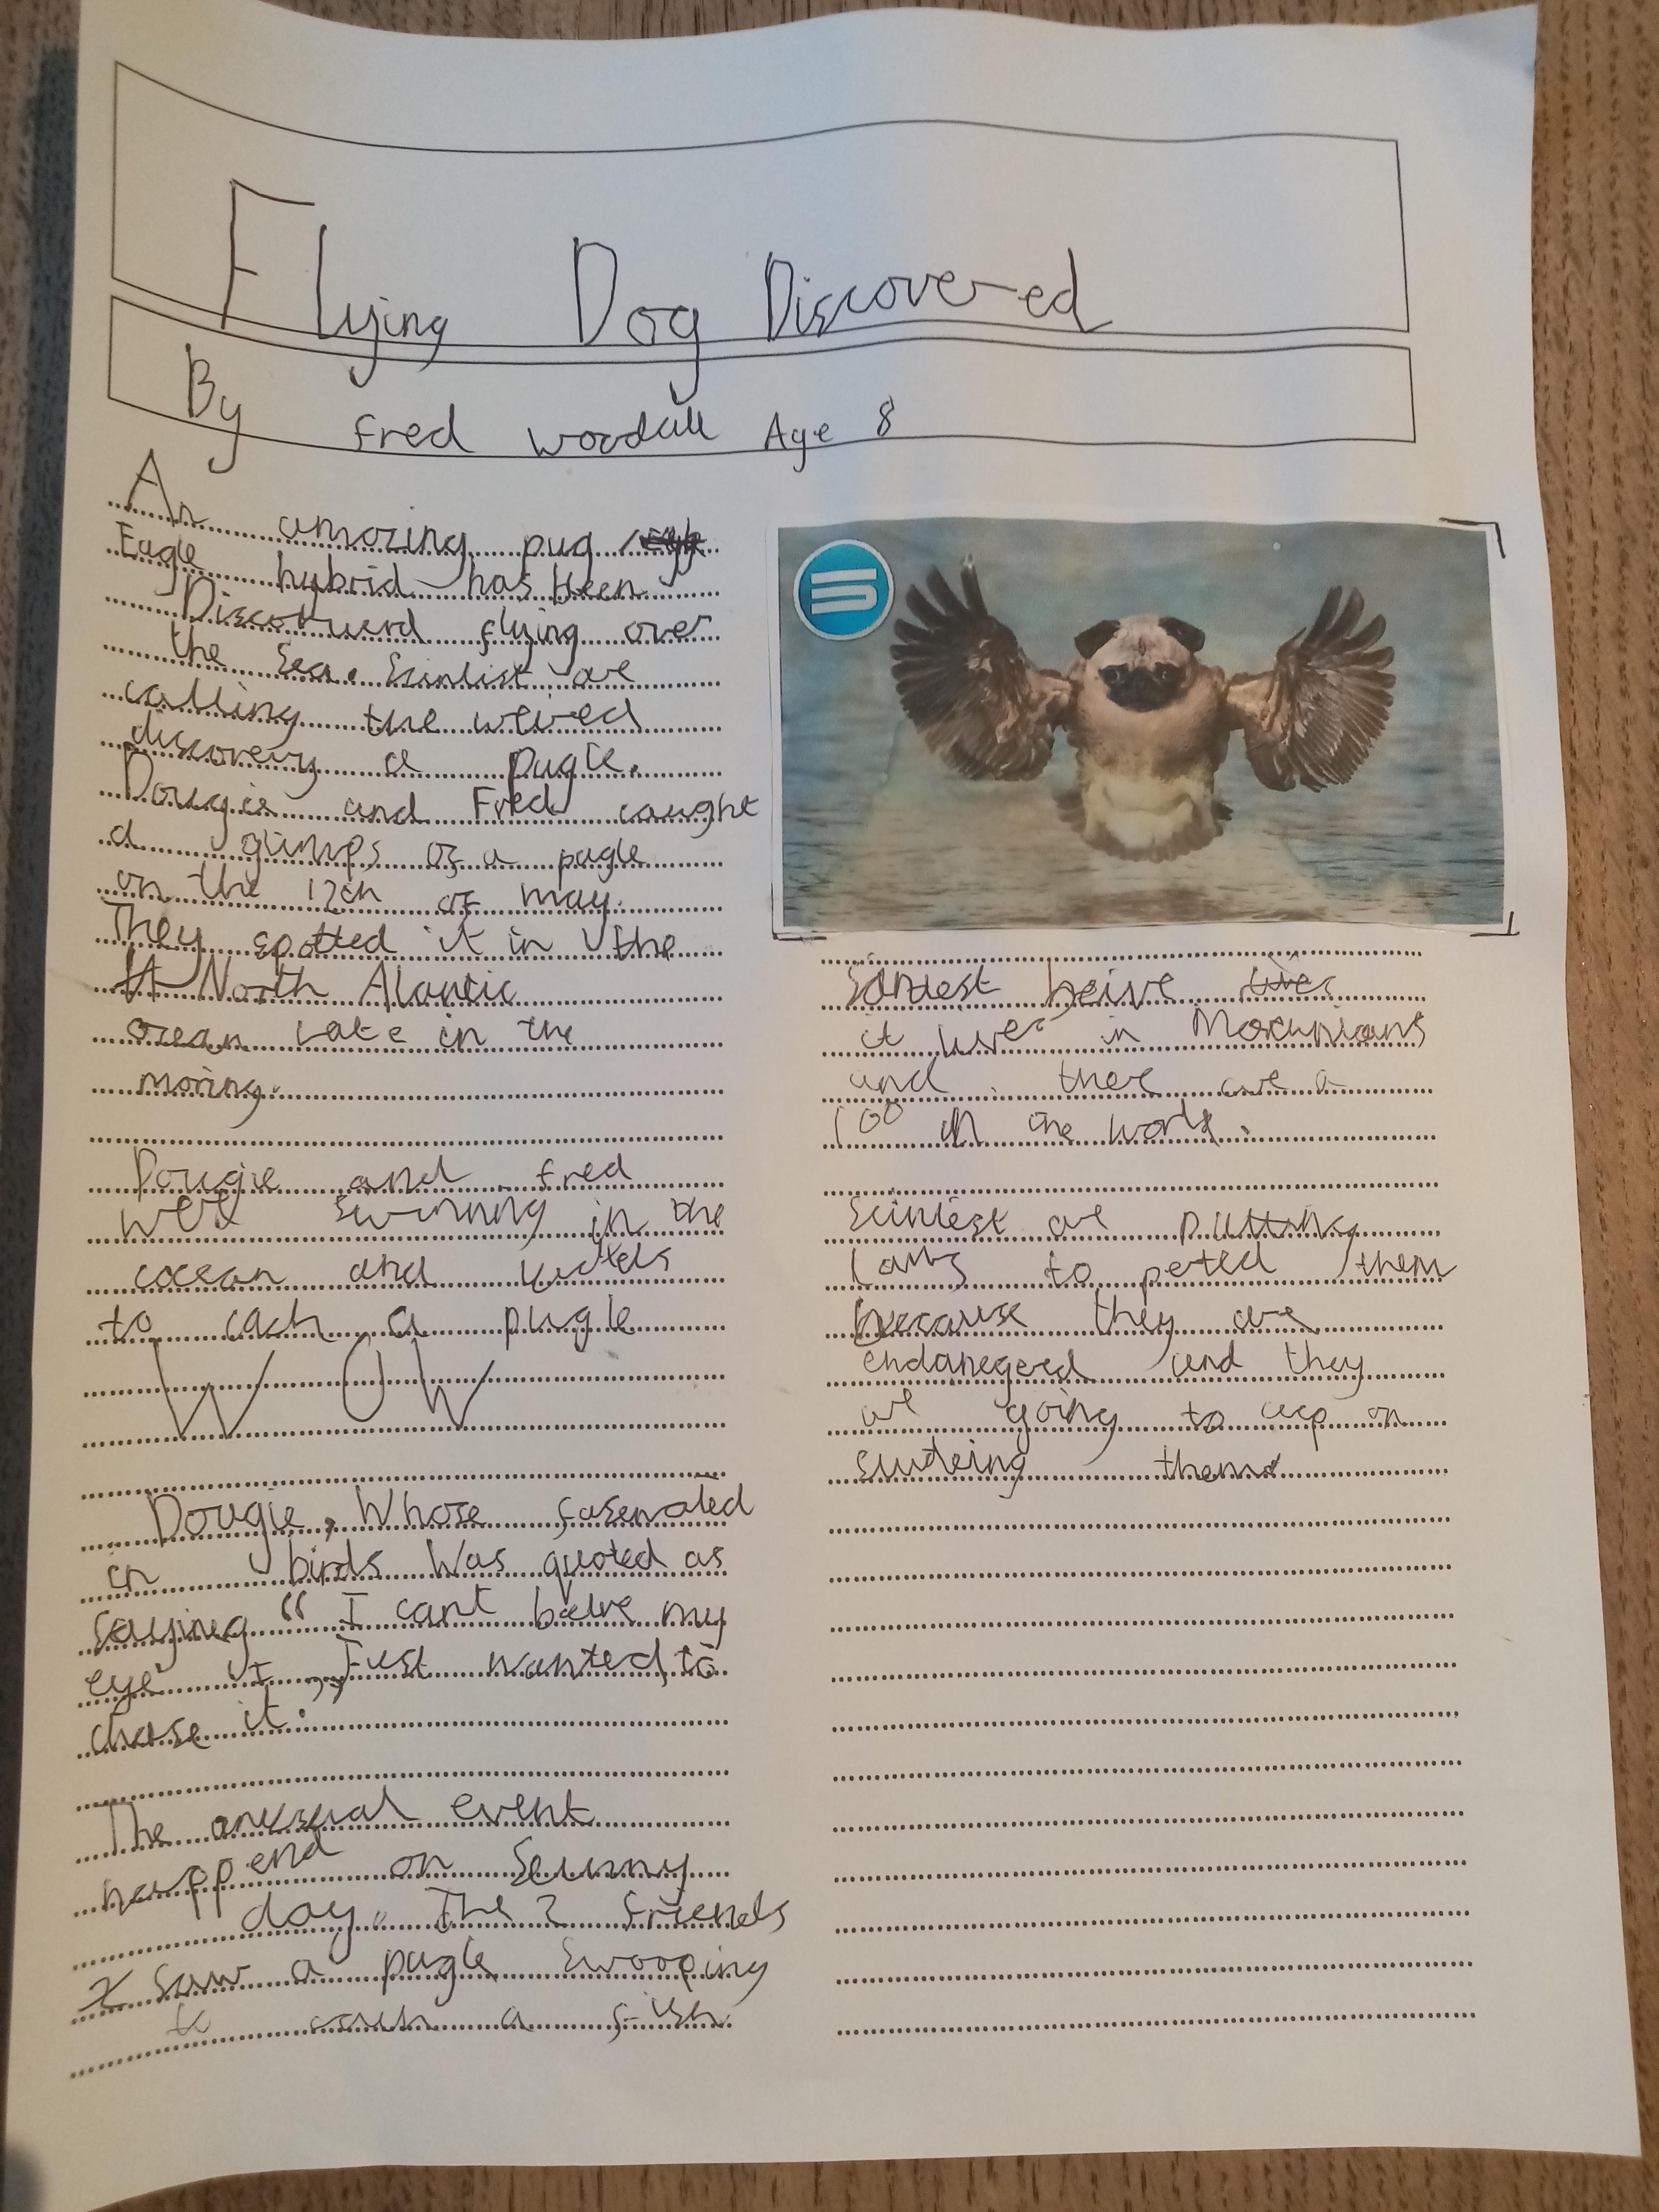 Flying Dog Discovered
By Fred Woodall Age 8
An amazing pug
Eagle hybrid has been
Discoverd flying over
the Sea. Scintist are
calling the weired
discovery a pugle.
Dougie and Fred caught
a glimps of a pugle
on the 12th of may.
They spotted it in the
North Alantic
ocean Late in the
moring.
Dougie and fred
were swimming in the
ocean and
to cach a pugle
WOW
Dougie, Whose fasenated
in birds Was quoted as
saying "I cant belive my
eye I Just wanted to
chase it."
The unusual event
happend on Sunny
day. The 2 friends
saw a pugle Swooping
to cach a fish.
beive
it lives in
and there are a
100 in the world.
Scintest are putting
laws to peted them
because they are
endanegerd and they
are going to ceep on
studeing them